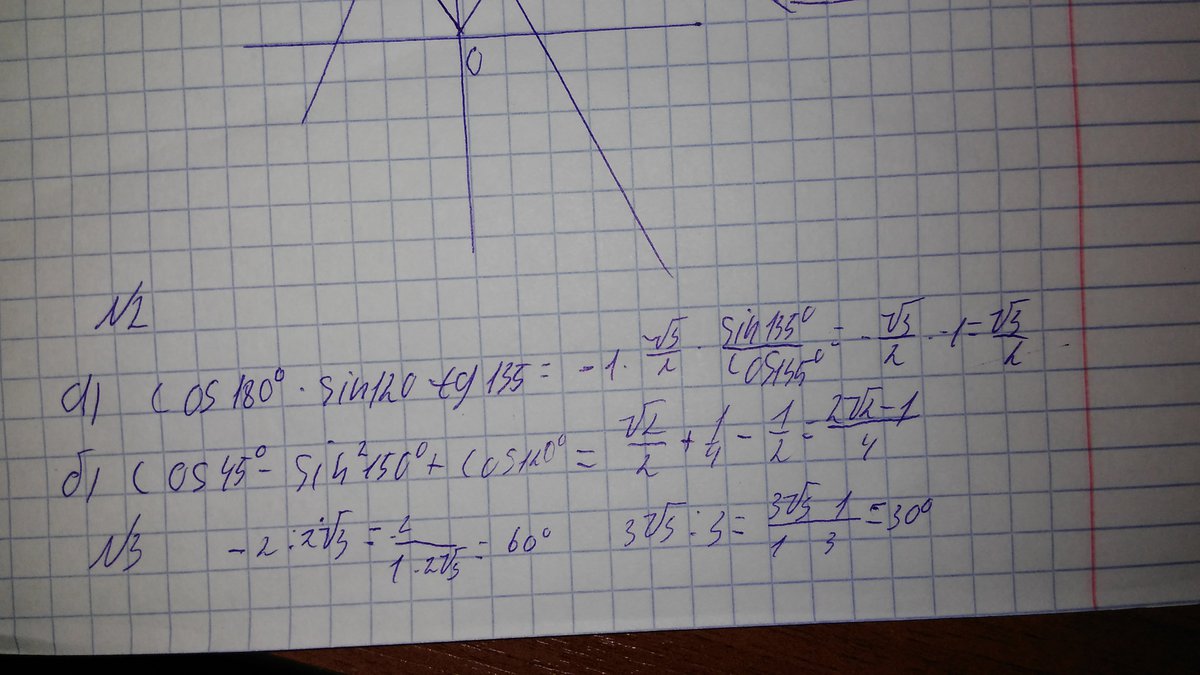 0
№2
а) cos 180° · sin 120 · tg 135 = -1 · √3/2 · sin 135°/cos 135° = -√3/2 · -1 = √3/2
б) cos 45° - sin² 150° + cos 120° = √2/2 + 1/4 - 1/2 = 2√2-1/4
№3 -2 : 2√3 = -2/1·2√3 = 60° 3√3 : 3 = 3√3 1/1 3 = 30°